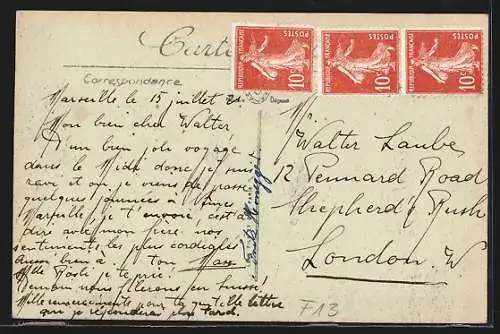 Carte
Correspondance
REPUBLIQUE FRANÇAISE POSTES 10c
REPUBLIQUE FRANÇAISE POSTES 10c
REPUBLIQUE FRANÇAISE POSTES 10c
Marseille le 15 juillet 21
Mon bien cher Walter
D'un bien joli voyage
dans le Midi dont je suis
ravi et où je viens de passer
quelques journées à
Marseille je t'envoie, c'est à
dire avec mon frère nos
sentiments les plus cordiales
Aussi bien à ton
Mlle Rosli je te prie!
Demain nous filerons en Suisse!
Mille remerciements pour ta gentille lettre
que je répondrai plus tard.
Walter Laube
12 Pennard Road
Shepherd's Bush
London. W
F13